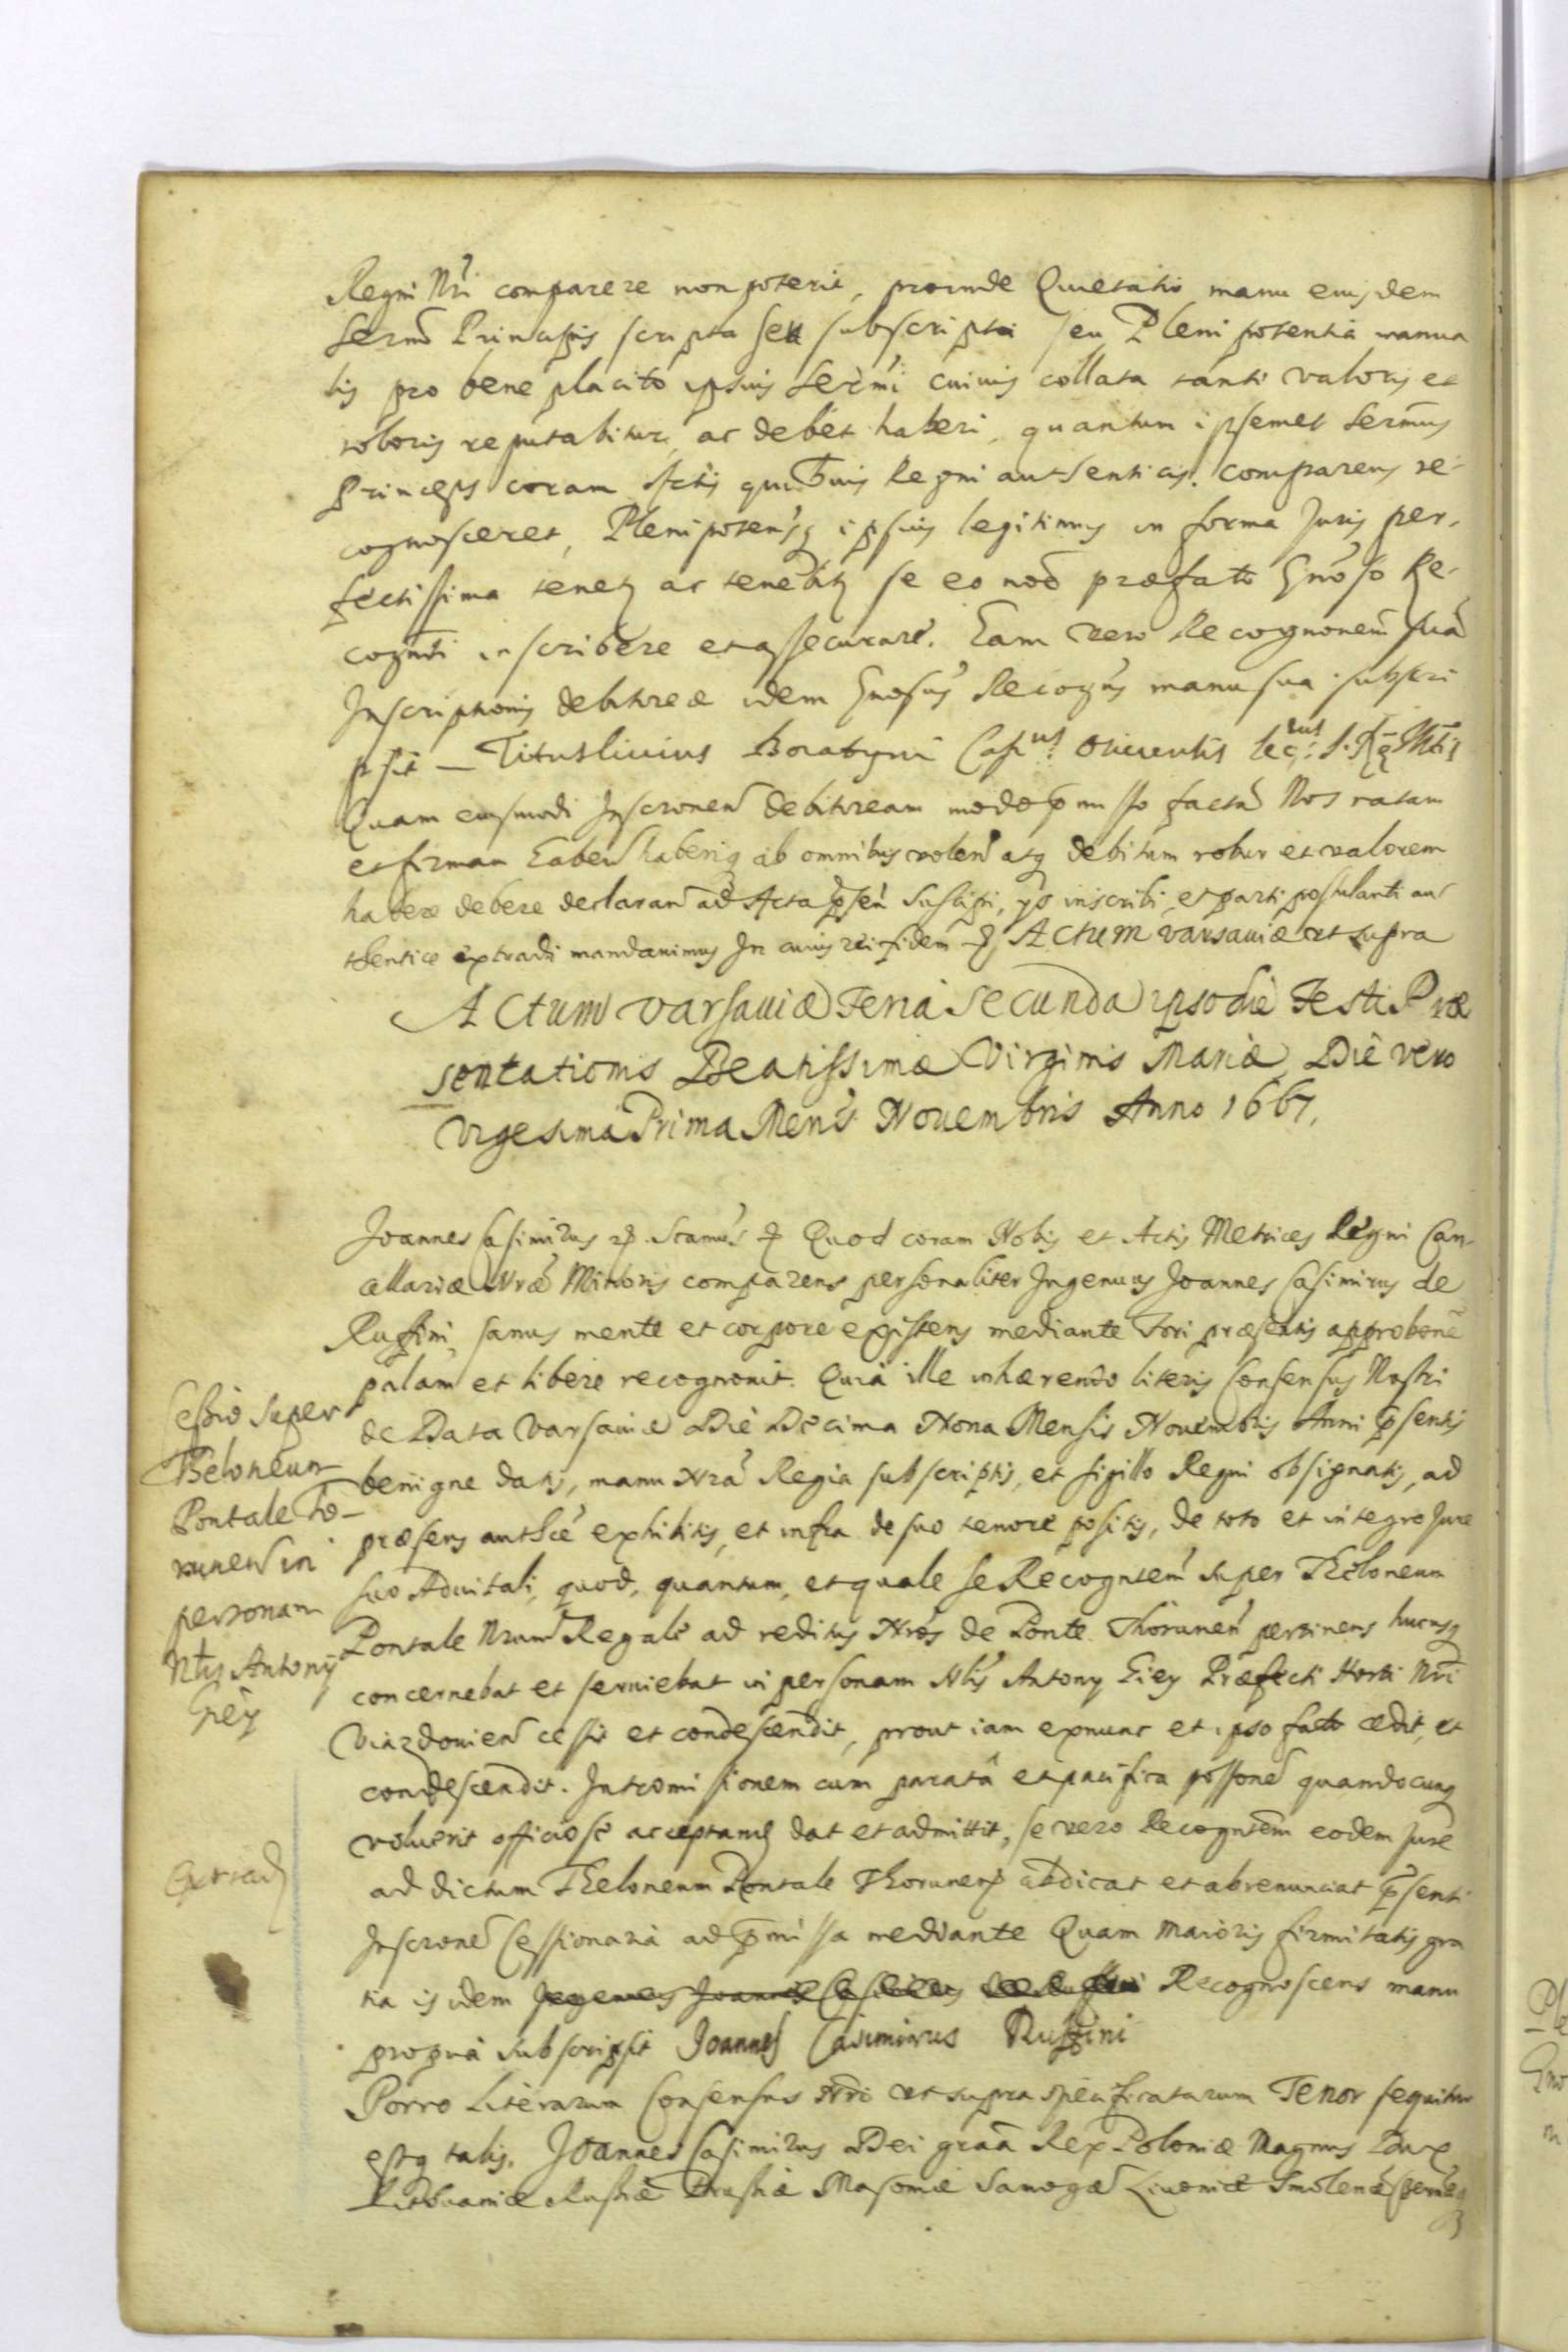 Regni Nri comparere non poterit, proinde Quietatio manu eiusdem
Sermi Principis scripta seu subscripta seu Plenipotentia manua
lis pro beneplacito ipsius Sermi cuiuis collata tanti valoris et
roboris reputabitur, ac debet haberi, quantum ipsemet Sermus
Princeps coram Actis quibuis Regni authenticis comparens re-
cognosceret, Plenipotensq ipsius legitimus in forma Juris per-
fectissima tenetur ac tenebitur se eo nod praefato Gnoso Re-
cognti inscribere et assecurare. Eam vero Recognonem suã
Inscriptionis debitoreæ idem Gnosus Recogns manu sua subscri
psit — Titus Liuius Boratyni
Quam eiusmodi Inscronem debitoream modo pmisso factã Nos ratam
et firmam haben haberiq ab omnibus volen atq debitum robur et valorem
habere debere declaran ad Acta psen suscipi, ys inscribi, et parti postulanti au
thentice extradi mandauimus In cuius rei fidem Actum Varsauiæ ut supra
Actum Varsauiæ Feria Secunda ipso die Festi Præ
sentationis Beatissimæ Virginis Mariæ Die vero
Vigesima Prima Mens Nouembris Anno 1667.
Joannes Casimirus Quod coram Nobis et Actis Metrices Regni Can-
cellariæ Nræ Minoris comparens personaliter Ingenuus Joannes Casimirus de
Ruffini, sanus mente et corpore existens mediante Fori præsentis approbone
palam et libere recognouit. Quia ille inhærendo literis Consensus Nostri
de Data Varsauiæ Die Decima Nona Mensis Nouembris Anni psentis
benigne datis, manu Nra Regia subscriptis, et sigillo Regni obsignatis, ad
præsens authce exhibitis, et infra de suo tenore positis, de toto et integro Jure
suo Aduitali, quod, quantum, et quale se Recogntem super Theloneum
Pontale Nrum Regale ad reditus Nros de Ponte Thorunen pertinens hucusq
concernebat et seruiebat in personam Nlis Antony Giey Præfecti Horti Nri
Viazdouien cessit et condescendit, prout iam exnunc et ipso facto cedit, et
condescendit. Intromissionem cum parata et pacifica possone quandocunq
voluerit officiose acceptam dat et admittit, se vero Recogntem eodem Jure
ad dictum Theloneum Pontale Thorunen abdicat et abrenunciat psenti
Inscrone Cessionaria ad pmissa mediante Quam maioris firmitatis gra
tia is idem Recognoscens manu
propria subscripsit Joannes Casimirus Ruffini
Porro Literarum Consensus Nri ut supra specificatarum Tenor sequitur
estq talis. Joannes Casimirus Dei graa Rex Poloniæ Magnus Dux
Lithuaniæ Russiæ Prussiæ Masouiæ Samogæ Liuoniæ Smolenæ
Cessio super
Theloneum
Pontale Tho-
runen in
personam
Nlis Antony
Giey
Extrad